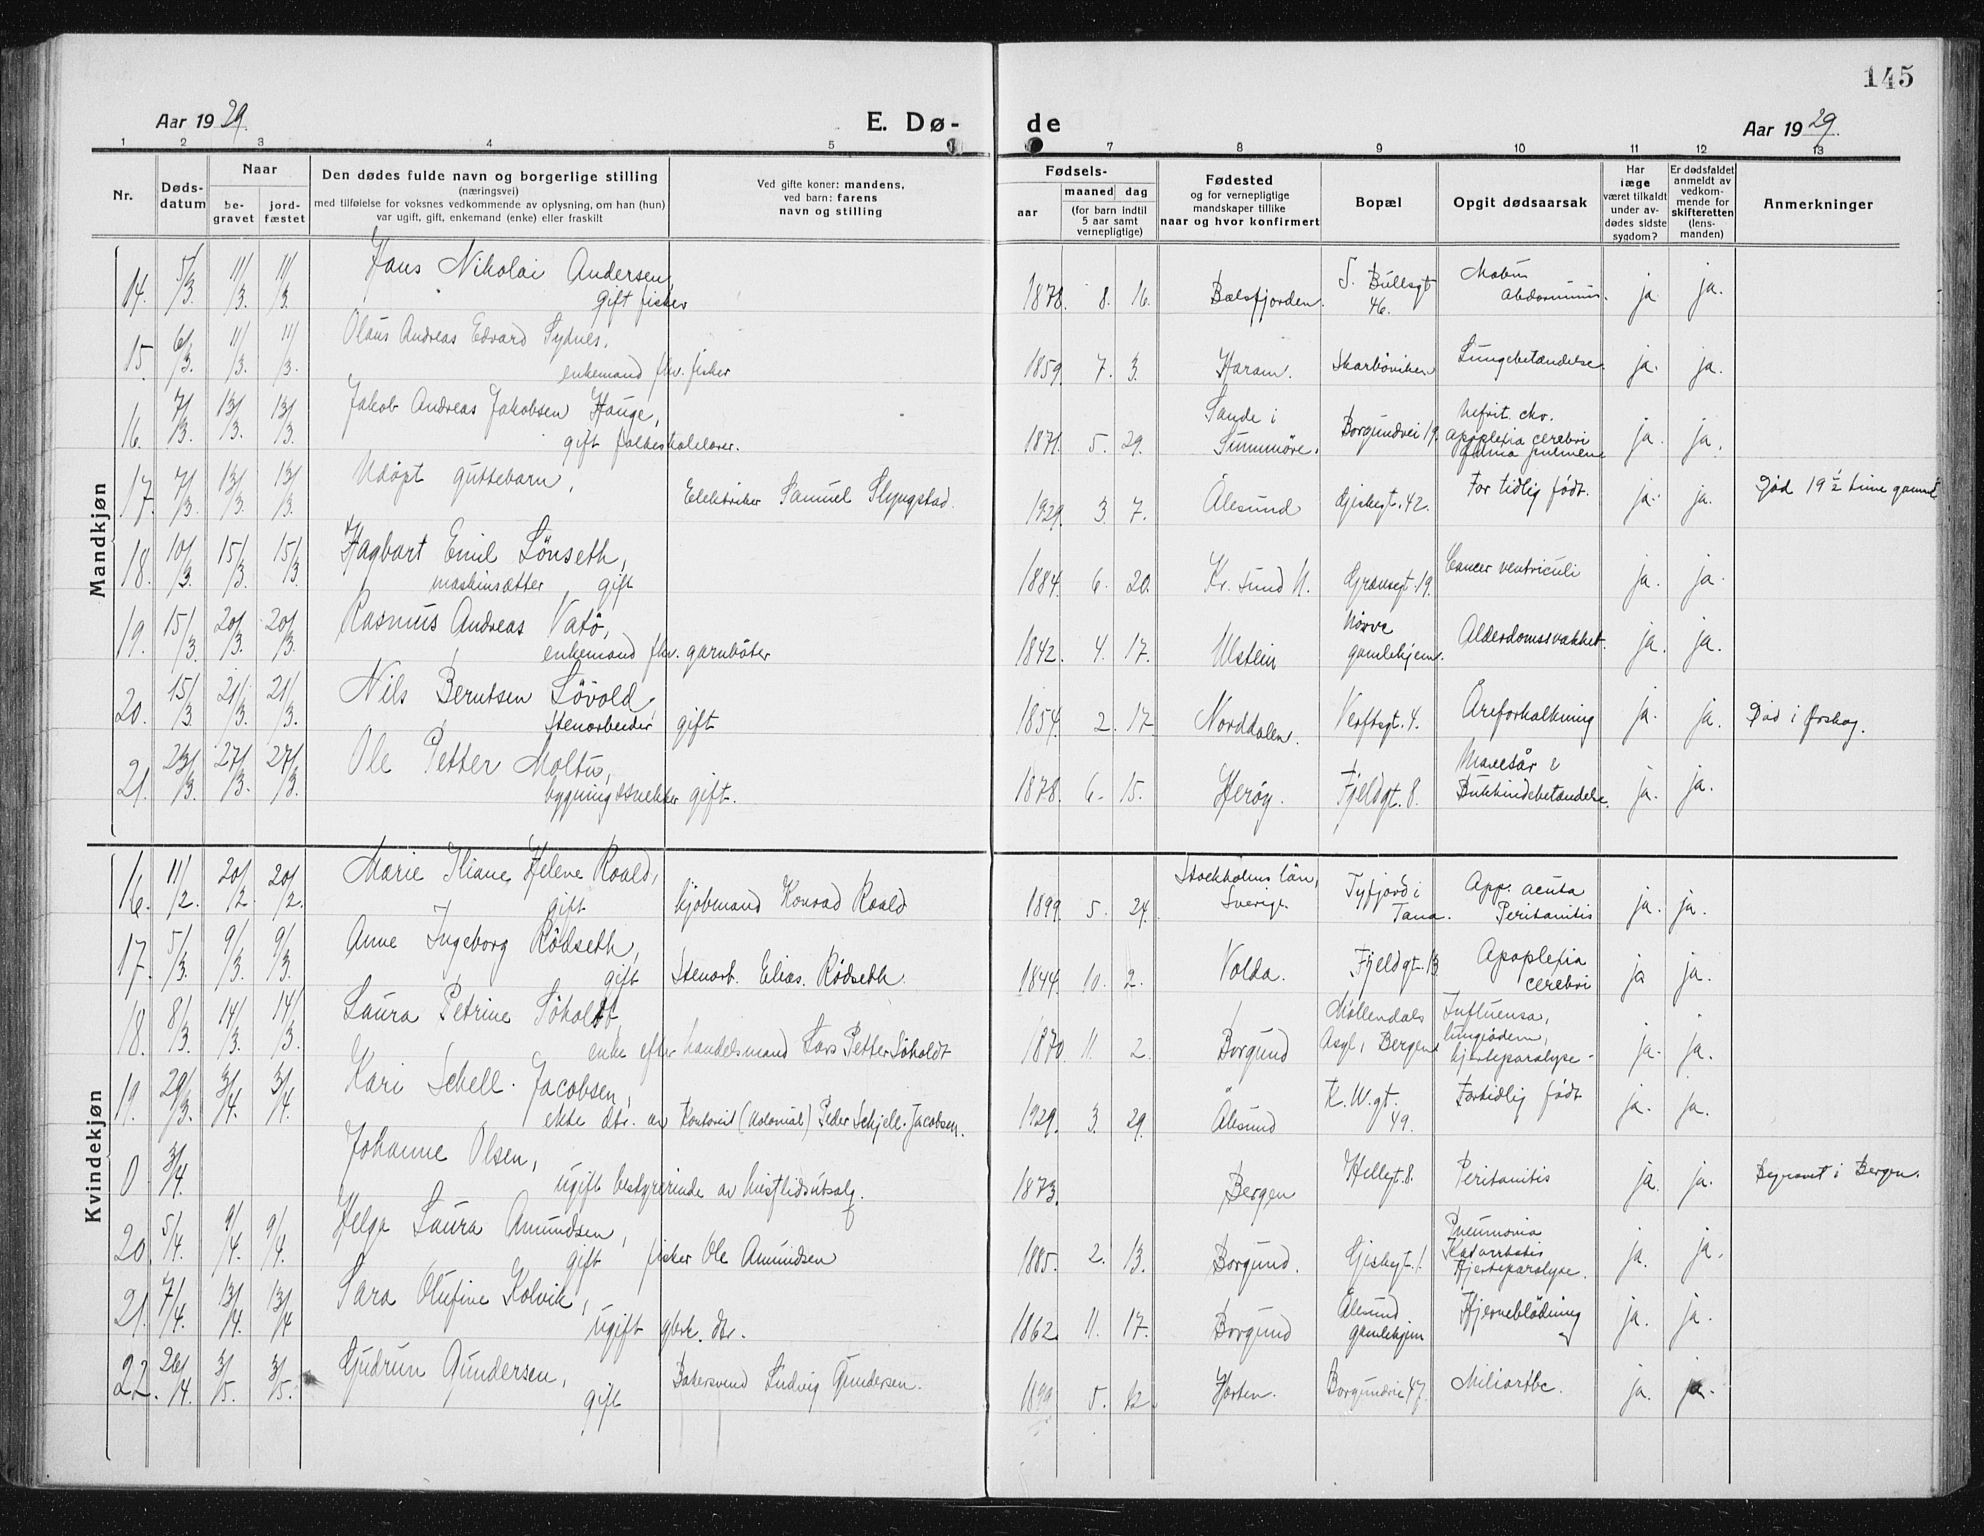 145
Aar 1929.
E. Dø-
de
Aar 1929.
1 2 3 4 5 7 8 9 10 11 12 13
Nr.
Døds-
datum
Naar
be-
gravet
jord-
fæstet
Den dødes fulde navn og borgerlige stilling
(næringsvei)
med tilføielse for voksnes vedkommende av oplysning, om han (hun)
var ugift, gift, enkemand (enke) eller fraskilt
Ved gifte koner: mandens,
ved barn: farens
navn og stilling
Fødsels-
aar
maaned dag
(for barn indtil
5 aar samt
vernepligtige)
Fødested
og for vernepligtige
mandskaper tillike
naar og hvor konfirmert
Bopæl
Opgit dødsaarsak
Har
læge
været tilkaldt
under av-
dødes sidste
sygdom?
Er dødsfaldet
anmeldt av
vedkom-
mende for
skifteretten
(lens-
manden)
Anmerkninger
Mandkjøn
14. 5/3. 11/3. 11/3. Hans Nikolai Andersen,
gift fisker
1878. 8. 16. Balsfjorden. S. Bullsgt 46. Morbus Abdominus. ja. ja.
15. 6/3. 11/3. 11/3. Olaus Andreas Edvard Sydnes,
enkemand fhv. fisker
1859. 7. 3. Haram. Skarbøviken Lungebetændelse. ja. ja.
16. 7/3. 13/3. 13/3. Jakob Andreas Jakobsen Hauge,
gift folkeskolelærer.
1871. 5. 29. Sande i Sunnmøre. Borgundvei 19. Nefrit. chr. Apoplexia cerebri ja. ja.
17. 7/3. 13/3. 13/3. Udøpt guttebarn, Elektriker Samuel Slyngstad.
1929. 3. 7. Ålesund Gjiskegt. 42. For tidlig født. ja. ja. Død 19 1/2 time gammel
18. 10/3. 15/3. 15/3. Hagbart Emil Lønseth,
maskinsætter gift
1884. 6. 20. Kr. sund N. Grønsegt. 19. Cancer ventriculi ja. ja.
19. 15/3. 20/3. 20/3. Rasmus Andreas Vatø,
enkemand fhv. garnbøter
1842. 4. 17. Ulstein Nørve gamlehjem. Alderdomssvakhet. ja. ja.
20. 15/3. 21/3. 21/3. Nils Berntsen Løvold,
Stenarbeider gift
1854. 2. 17 Norddalen. Verftsgt. 4. Åreforkalkning ja. ja. Død i Ørskog.
21. 23/3. 27/3. 27/3. Ole Petter Moltu,
bygningssnekker gift.
1878. 6. 15. Herøy. Fjeldgt. 8. Mavesår & Bukhindebetændelse. ja. ja.
Kvindekjøn
16. 11/2. 20/2. 20/2. Marie Kiane Helene Roald,
gift kjøbmand Konrad Roald
1899. 5. 24. Stockholms län, Sverige. Tyfjord i Tana. App. acuta Peritonitis ja. ja.
17. 5/3. 9/3. 9/3. Anne Ingeborg Rødseth,
gift Stenarb. Elias Rødseth.
1844. 10. 2. Volda. Fjeldgt. 13 Apoplexia cerebri ja ja.
18. 8/3. 14/3. 14/3. Laura Petrine Søholdt,
enke efter handelsmand Lars Petter Søholdt
1870. 11. 2. Borgund Møllendals Asyl, Bergen Influensa, lungeødem, hjerteparalyse. ja. ja.
19. 29/3. 3/4. 3/4. Kari Schell-Jacobsen,
ekte dtr. av Kontorist (Kolonial) Peder Schjell-Jacobsen.
1929. 3. 29. Ålesund K. W. gt. 49. Fortidlig født ja. ja.
0 3/4. Johanne Olsen,
ugift bestyrerinde av husflidsutsalg.
1873. Bergen Hellegt. 8. Peritonitis ja. ja. Begravet i Bergen.
20. 5/4. 9/4. 9/4. Helga Laura Amundsen,
gift fisker Ole Amundsen
1885. 2. 13. Borgund. Gjiskegt. 1. Pneumonia Katarrhalis Hjerteparalyse. ja. ja.
21. 7/4. 13/4. 13/4 Sara Olufine Kolvik,
ugift gbrk. dtr.
1862. 11. 17. Borgund Ålesund gamlehjem Hjerneblødning ja. ja.
22. 26/4. 3/5. 3/5. Gudrun Gundersen,
gift Bakersvend Ludvig Gundersen.
1899. 5. 12. Horten. Borgundvei 47. Miliartbc. ja. ja.